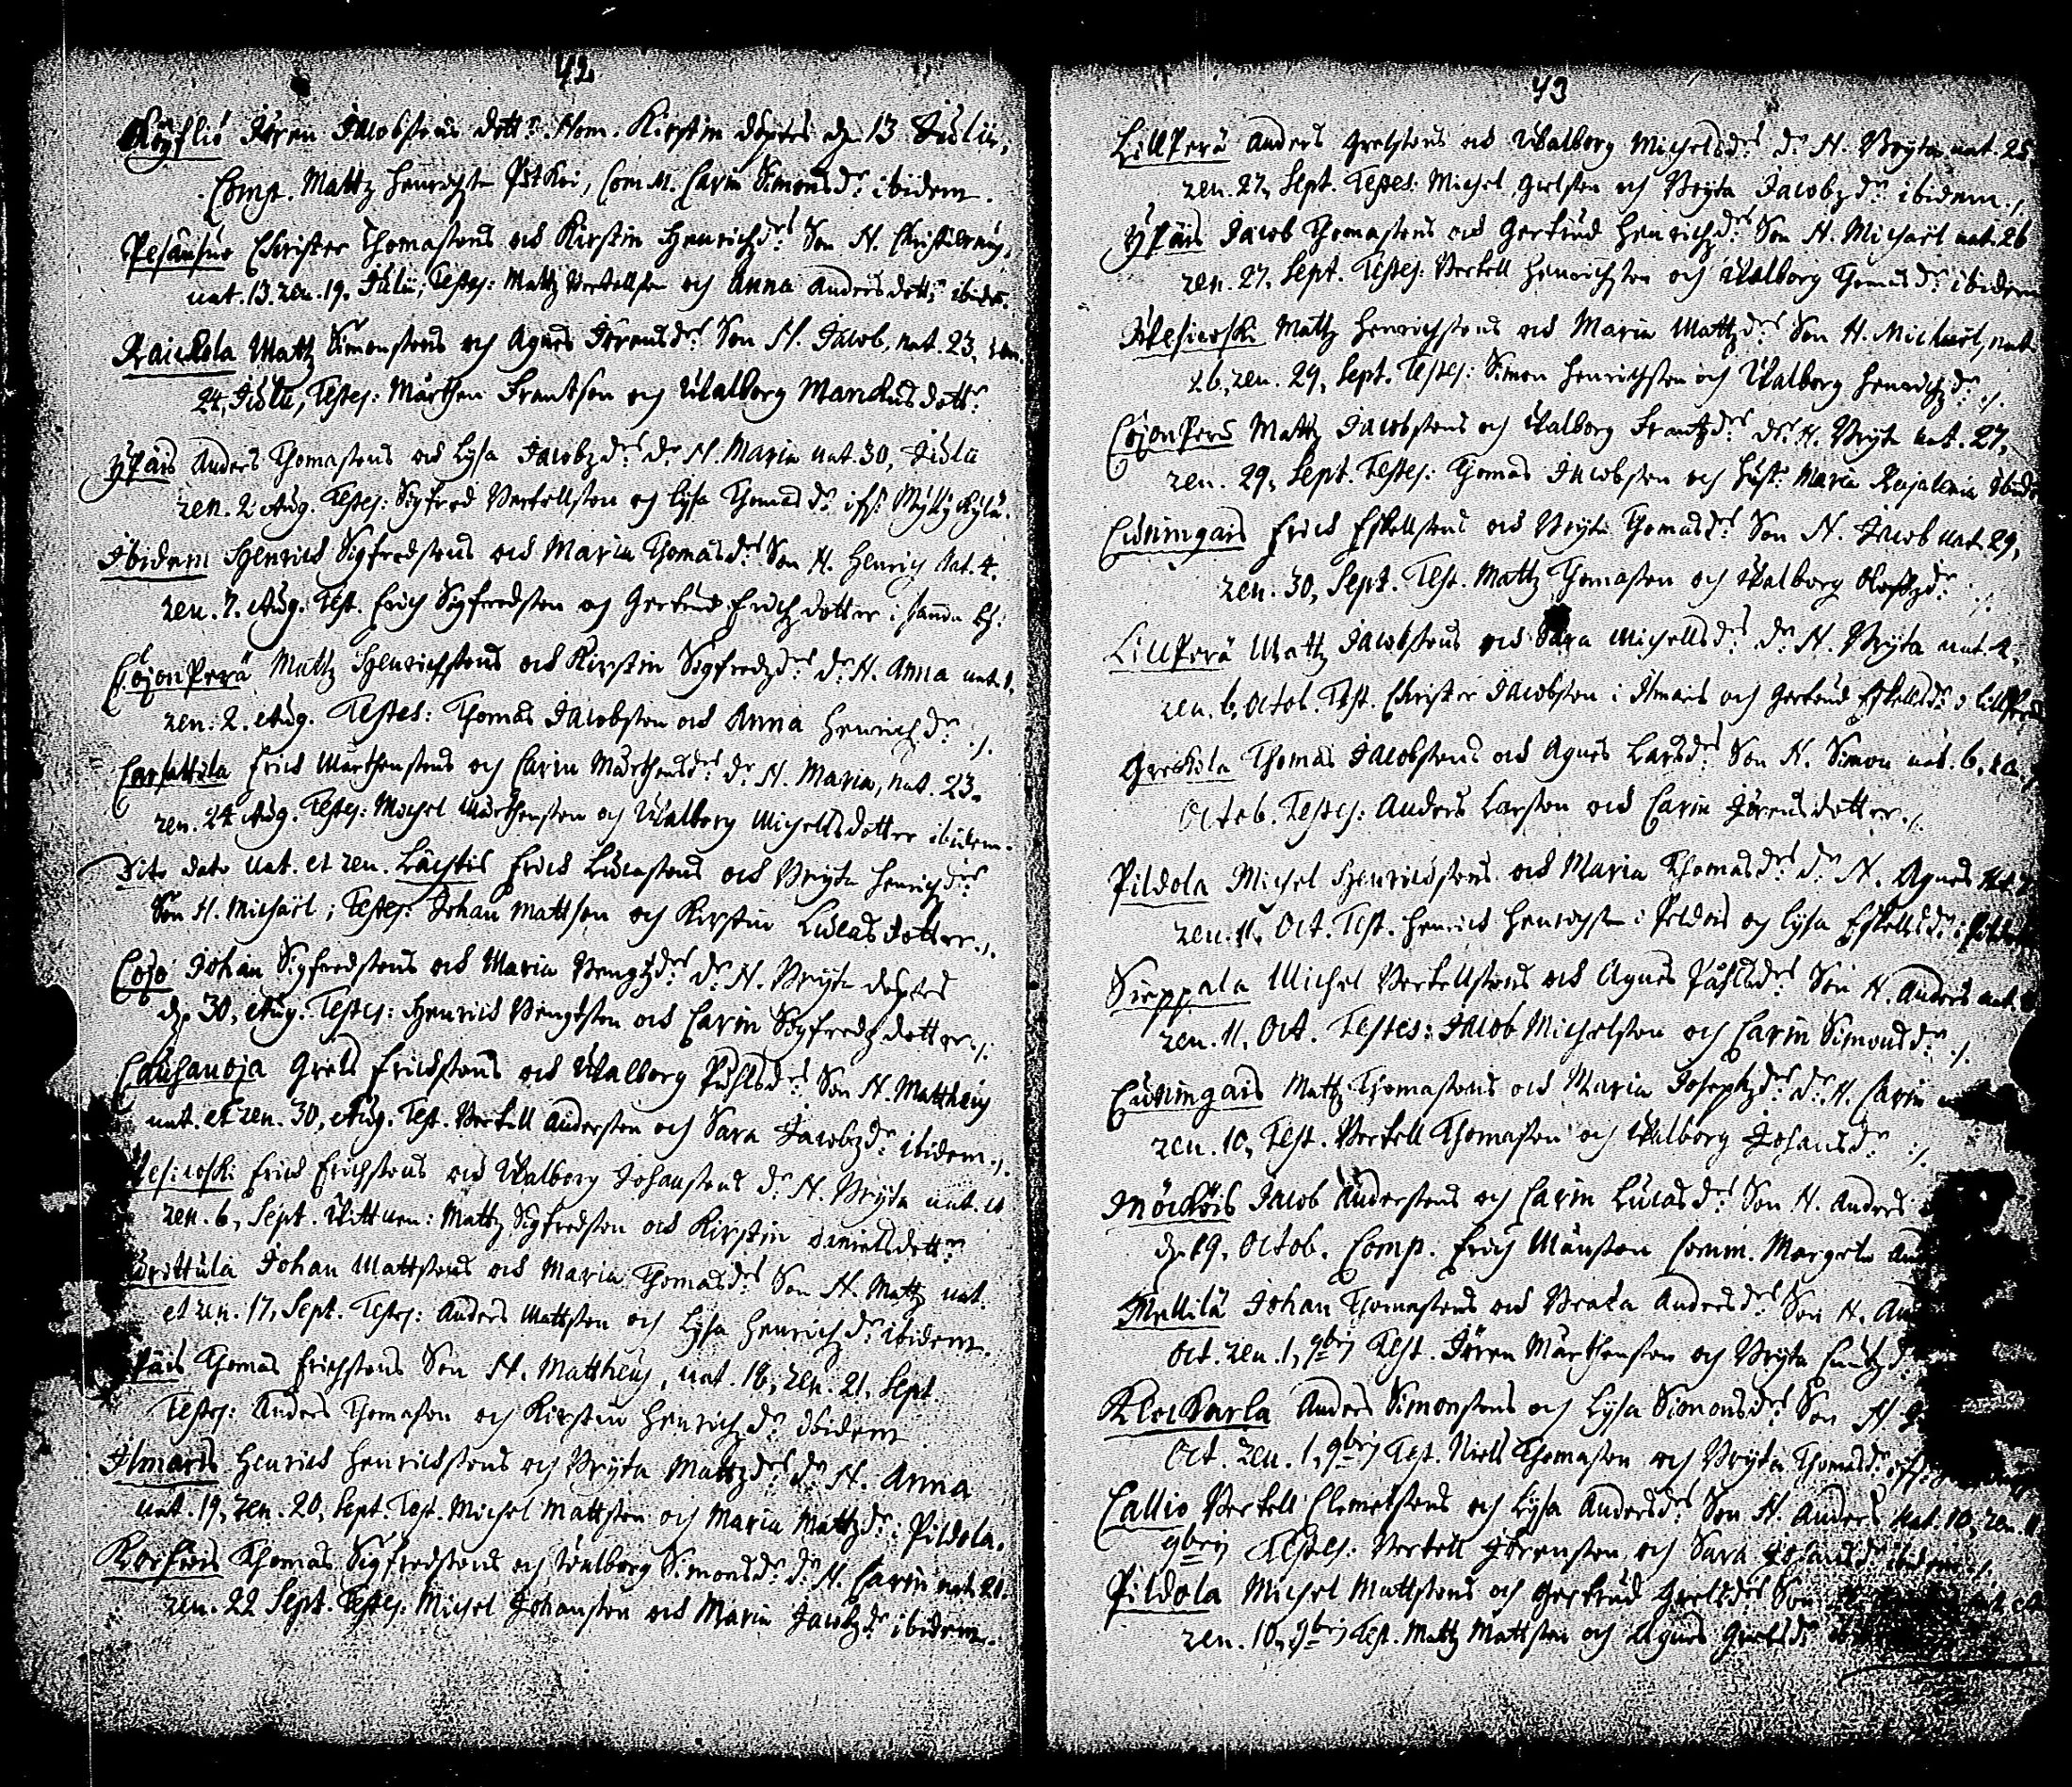 42
Köyliö Jören Jacobssons dott:r Nom. Kirstin döptes d. 13 Julii,
Comp. Mattz Henrichss: Com M. Carin Simonsd:r ibidem.
Christer Thomassons och Kirstin Henrichzd:rs Son N.
nat. 13. ren. 19. Julii, Testes: Mattz Bertellsson och Anna Andersdott:r ibidem.
Raickola Mattz Simonssons och Agnes Jörensd:rs Son N. Jacob, nat. 23. ren.
24, Julii, Testes: Mårthen Frantsson och Walborg Marckusdott:r
Ypäis Anders Thomassons och Lysa Jacobzd:rs d:r N. Maria nat. 30, Julii
ren. 2 Aug. Testes: Sigfred Bertellsson och Lysa Thomasd:r
Ibidem Henrich Sigfredssons och Maria Thomasd:rs Son N. Henrich nat. 4.
ren. 7. Aug. Test. Erich Sigfredsson och Gertrud Erichzdotter i samma by:
Cojonperä Mattz Henrichssons och Kirstin Sigfredzd:rs d:r N. Anna nat. 1.
ren: 2. Aug. Testes: Thomas Jacobsson och Anna Henrichzd:r ./.
Carhattula Erich Mårthenssons och Carin Mårthensd:rs d:r N. Maria, nat. 23.
ren. 24 Aug. Testes: Michel Mårthensson och Walborg Michellsdotter ibidem.
Dito dato nat. et ren. Lächtis Erich Lucassons och Bryta Henrichzd:rs
Son N. Michaël; Testes: Johan Mattsson och Kirstin Lucasdotter ./.
Cojo Johan Sigfredssons och Maria Bengtzd:rs d:r N. Bryta döptes
d. 30, Aug. Testes: Henrich Bengtsson och Carin Sigfredzdotter ./.
Cauhanoja Grels Erichssons och Walborg Påhlsd:rs Son N. Mattheus
nat. et ren. 30, Aug. Test. Bertill Andersson och Sara Jacobzd:r ibidem ./.
Erich Erichssons och Walborg Johanssons d:r N. Bryta nat.
ren. 6, Sept. Wittnen: Mattz Sigfredsson och Kirstin Danielsdott:r
Johan Mattssons och Maria Thomasd:rs Son N. Mattz nat.
et ren. 17, Sept. Testes: Anders Mattsson och Lysa Henrichzd:r ibidem.
Thomas Erichssons Son N. Mattheus, nat. 18, ren. 21, Sept.
Testes: Anders Thomasson och Kirstin Henrichzd:r ibidem
Ilmaris Henrich Henrichssons och Bryta Mattzd:rs d:r N. Anna
nat. 19, ren. 20, Sept. Test. Michel Mattsson och Maria Mattzd:r i Pildola.
Korkois Thomas Sigfredssons och Walborg Simonsd:rs d:r N. Carin nat. 21.
ren. 22 Sept. Testes: Michel Johansson och Maria Jacobzd:r ibidem.
43
Lillperä Anders Grelssons och Walborg Michelsd:rs d:r N. Bryta nat. 25.
ren. 27, Sept. Testes: Michel Grelsson och Bryta Jacobzd:r ibidem ./
Ypäis Jacob Thomassons och Gertrud Henrichzd:rs Son N. Michaël nat. 26
ren. 27, Sept. Testes: Bertell Henrichsson och Walborg Thomasd:r ibidem
Wesicoski Mattz Henrichssons och Maria Mattzd:rs Son N. Michaël, nat.
26, ren. 29, Sept. Testes: Simon Henrichsson och Walborg Henrichzd:r ./.
Cojonperä Mattz Jacobssons och Walborg Frantzd:rs d:r N. Bryta nat. 27,
ren. 29, Sept. Testes: Thomas Jacobsson och Hust: Maria ibidem
Cuningais Erich Eskellssons och Bryta Thomasd:rs Son N. Jacob nat. 29,
ren. 30, Sept. Test. Mattz Thomasson och Walborg Olofzd:r ./.
Lillperä Mattz Jacobssons och Sara Michellsd:rs d:r N. Bryta nat. 2,
ren. 6, Octob. Test. Christer Jacobsson i Ilmaris och Gertrud Eskellsd:r i
Greckola Thomas Jacobssons och Agnes Larsd:rs Son N. Simon nat. 6,
Octob. Testes: Anders Larsson och Carin Jörensdotter ./.
Pildola Michel Henrichssons och Maria Thomasd:rs d:r N. Agnes
ren. 11, Oct. Test. Henrich Henrichss: i och Lysa Eskellsd:r i
Sieppala Michel Bertellssons och Agnes Påhlsd:rs Son N. Anders nat.
ren. 11, Oct. Testes: Jacob Michelsson och Carin Simonsd:r ./.
Cuningais Mattz Thomassons och Maria Josephzd:rs d:r N. Carin
ren. 10, Test. Bertell Thomasson och Walborg Johansd:r ./.
Möcköis Jacob Anderssons och Carin Lucasd:rs Son N. Anders
d. 19, Octob. Comp. Erich Månsson Comm. Margeta
Mellilä Johan Thomassons och Beata Andersd:rs Son N.
Oct. ren. 1, 9bris Test. Jören Mårthensson och Bryta
Kleckarla Anders Simonssons och Lysa Simonsd:rs Son N.
Oct. ren. 1, 9bris Test. Niels Thomasson och Bryta Thomasd:r
Callio Bertell Clemetssons och Lysa Andersd:rs Son N. Anders nat. 10, ren. 11
9bris Testes: Bertell Jörensson och Sara Johansd:r ibidem ./.
Pildola Michel Mattssons och Gertrud Grelsd:rs Son
ren. 10, 9bris Test. Mattz Mattsson och Agnes Grelsd:r